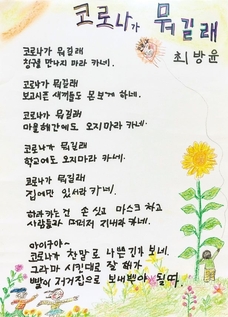 코로나가 뭐길래
최방윤
코로나가 뭐길래
친구를 만나지 마라 카네.
코로나가 뭐길래
보고시픈 새끼들도 몬보게 하네.
코로나가 뭐길래
마을해관에도 오지마라 카네.
코로나가 뭐길래
학교에도 오지마라 카네.
코로나가 뭐길래
집에만 있서라 카네.
하라카는건 손 씻고 마스크 차고
사람들과 떠러저 지내라카네.
아이구야~
코로나가 찬말로 나쁜긴가 보네.
그라마 시킨대로 잘 해가
빨이 저거집으로 보내뿌야 될따.